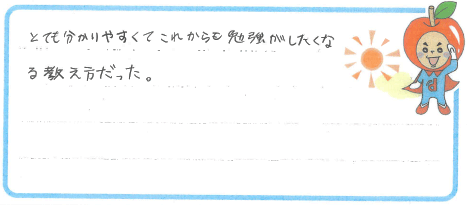 とても分かりやすくてこれからも勉強がしたくな
る教え方だった。
d